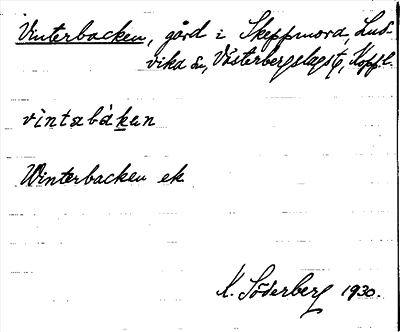 Vinterbacken, gård i Skeppmora, Lud-
vika sn, Västerbergslags t, Kopp. l.
vìntəbákən
Winterbacken ek
K. Söderberg 1930.